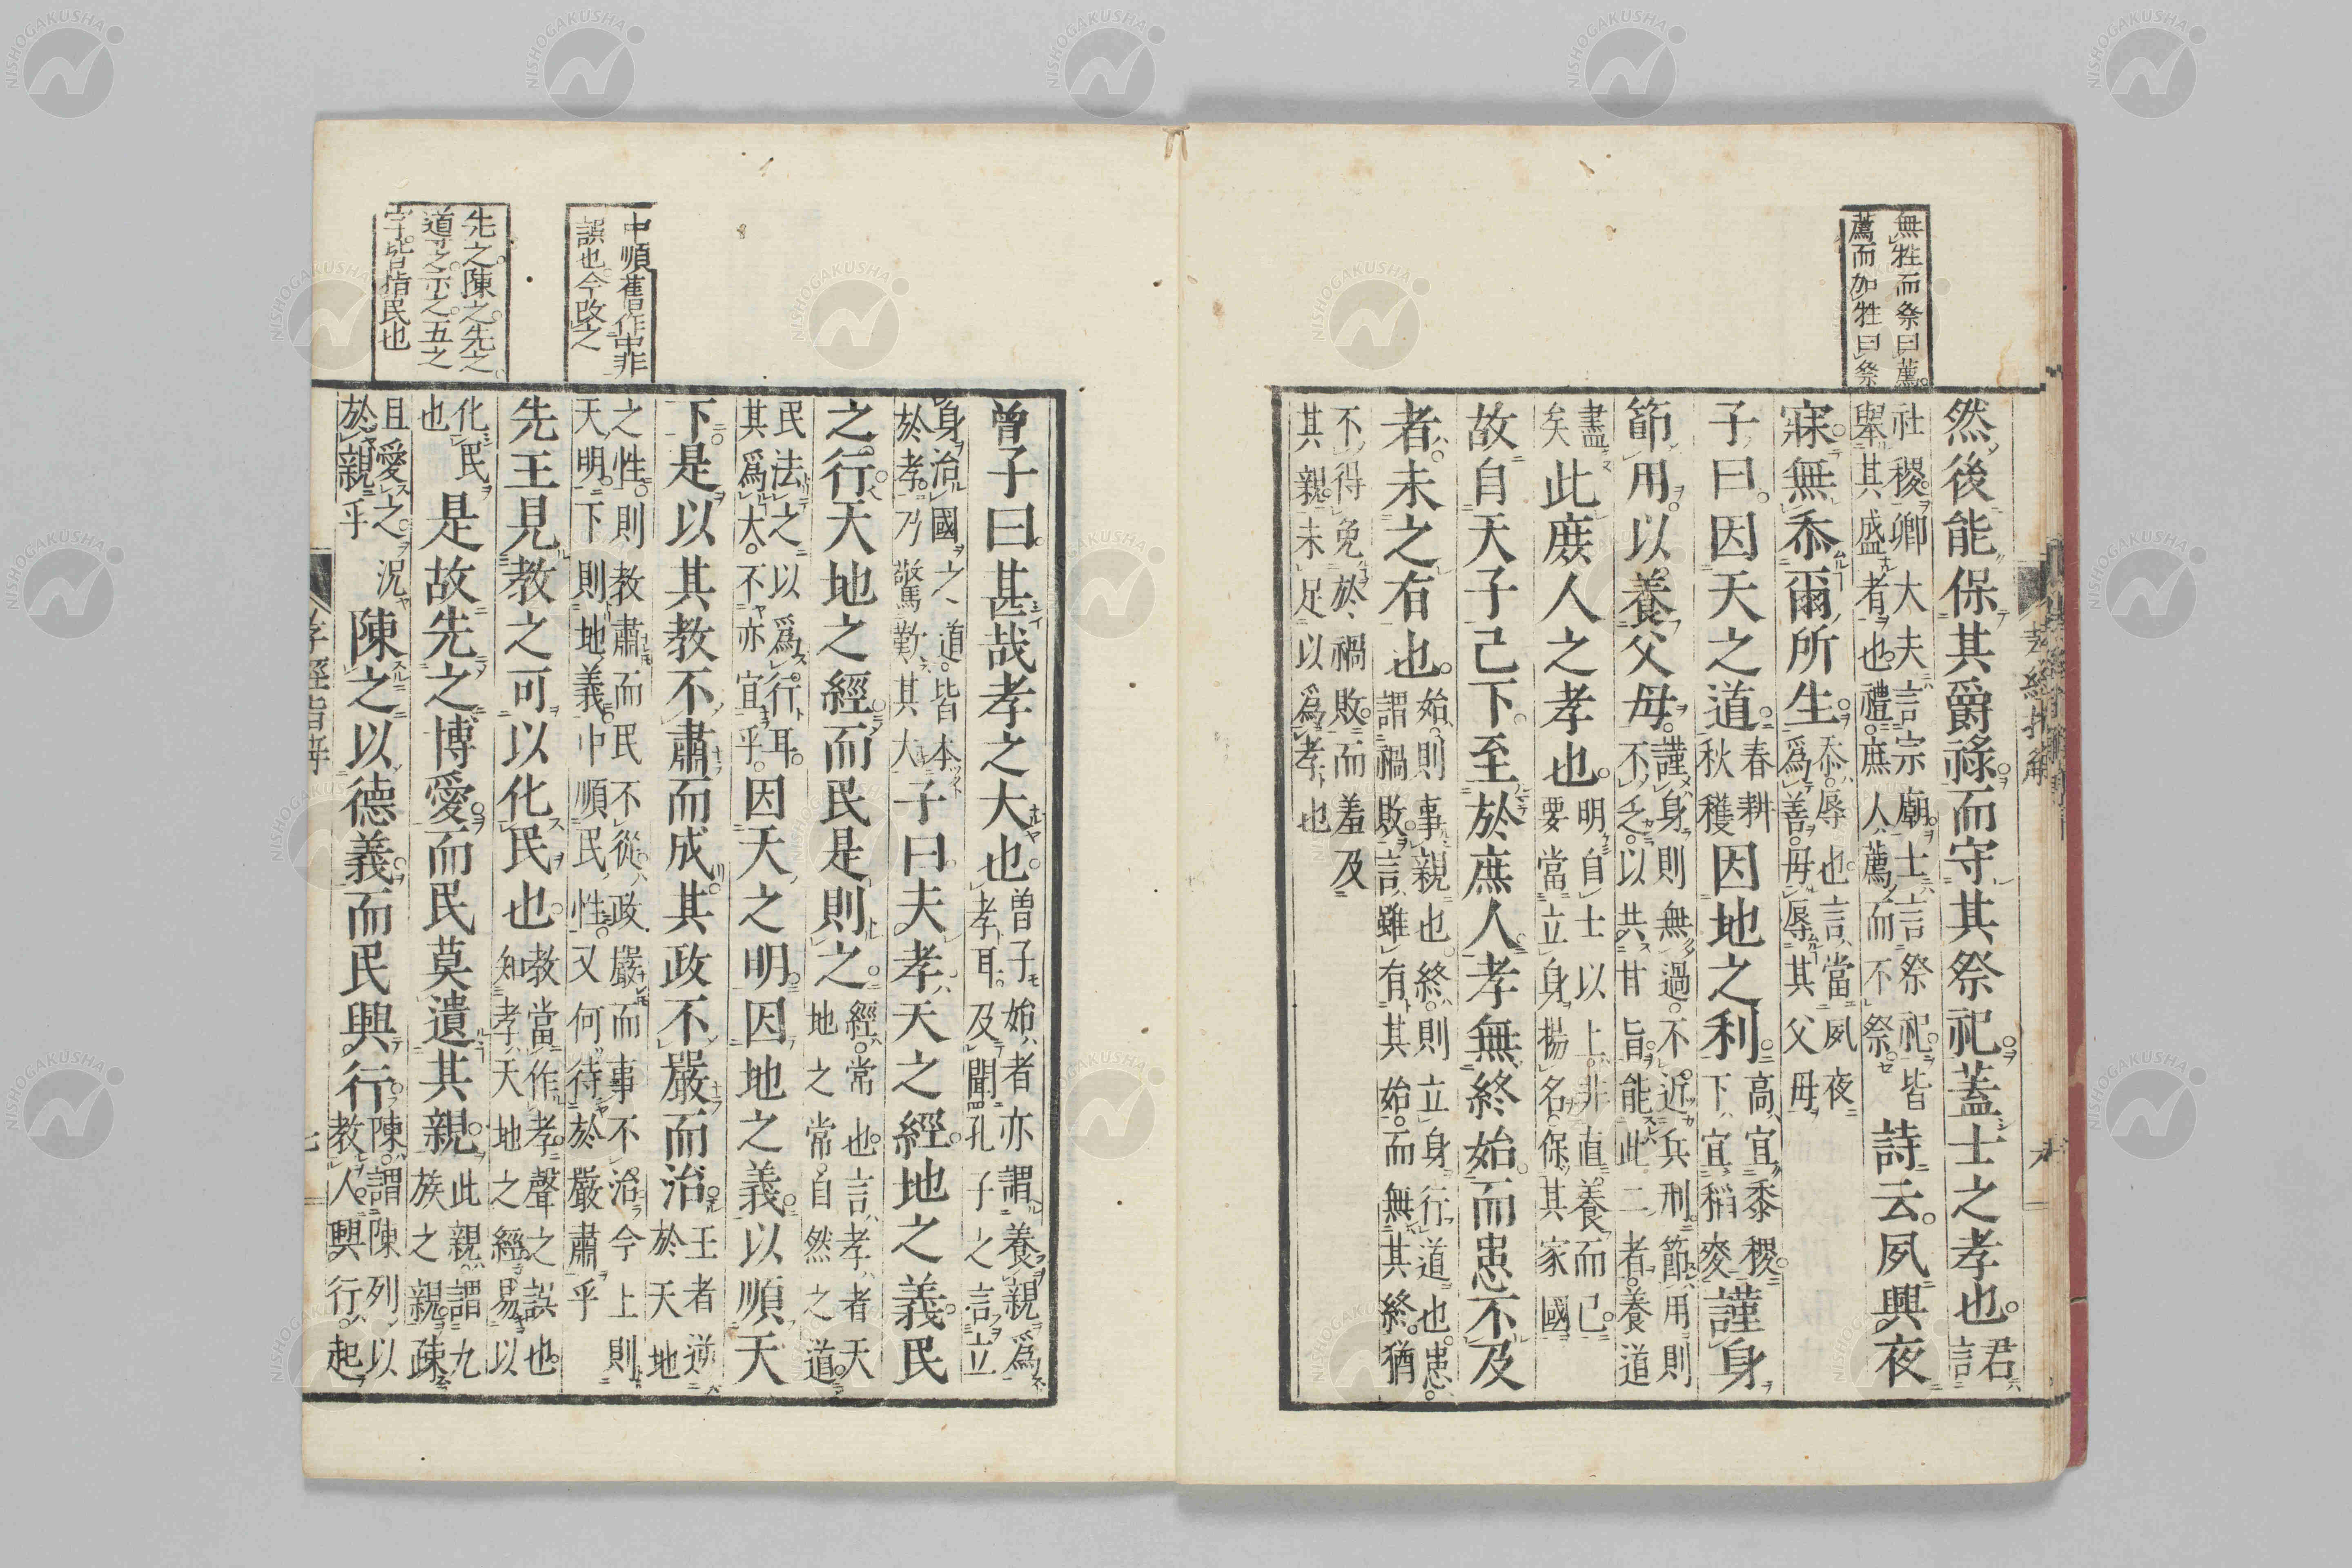 無牲而祭曰薦
薦而加牲曰祭
然後能保其爵祿而守其祭祀蓋士之孝也君言
社稷卿大夫言宗廟士言祭祀皆
舉其盛者也禮庶人薦而不祭
詩云夙興夜
寐無忝爾所生
忝辱也言當夙夜
爲善毋辱其父母
子曰因天之道
春耕
秋穫
因地之利
高宜黍稷
下宜稻麥
謹身
節用以養父母
謹身則無過不近兵刑節用則
不乏以共甘旨能此二者養道
盡矣
此庶人之孝也
明自士以上非直養而已
要當立身揚名保其家國
故自天子已下至於庶人孝無終始而患不及
者未之有也
始則事親也終則立身行道也患
謂禍敗言雖有其始而無其終猶
不得免於禍敗而羞及
其親未足以爲孝也
中順舊作中非
誤也今改之
先之陳之先之
道之示之五之
字皆指民也
曾子曰甚哉孝之大也
曾子始者亦謂養親爲
孝耳及聞孔子之言立
身治國之道皆本
於孝乃驚歎其大
子曰夫孝天之經地之義民
之行天地之經而民是則之
經常也言孝者天
地之常自然之道
民法之以爲行耳
其爲大不亦宜乎
因天之明因地之義以順天
下是以其教不肅而成其政不嚴而治
王者逆
於天地
之性則教肅而民不從政嚴而事不治今上則
天明下則地義中順民性又何待於嚴肅乎
先王見教之可以化民也
教當作孝聲之誤也
知孝天地之經易以
化民
也
是故先之博愛而民莫遺其親
此親謂九
族之親疎
且愛之況
於親乎
陳之以德義而民興行
陳謂陳列以
教人興行起
孝經指解